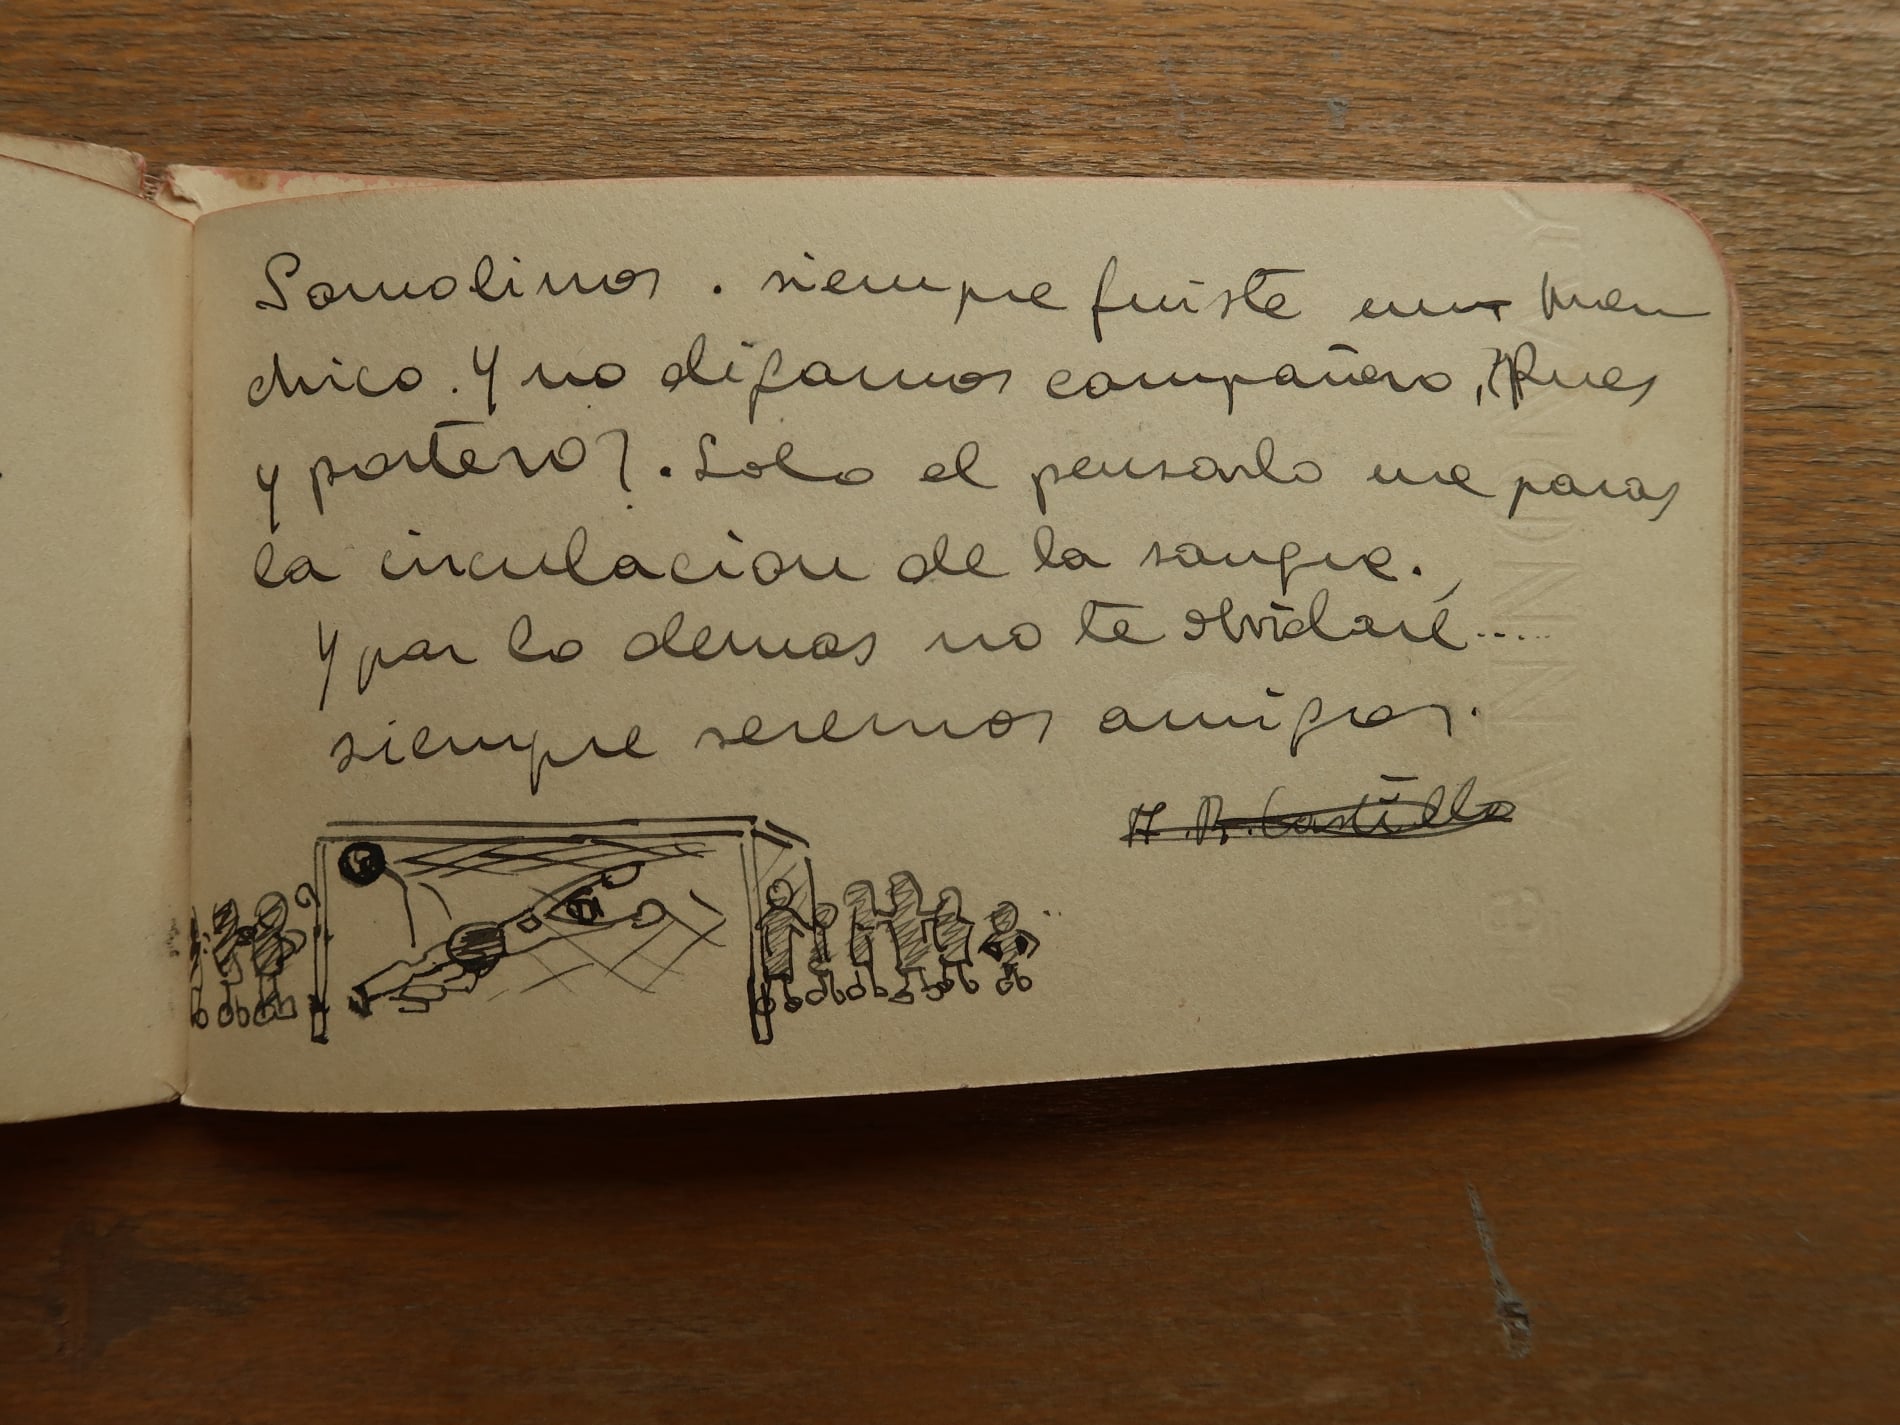 Somolinos . siempre fuiste un buen
chico . Y no digamos compañero, Pues
y portero? . Solo el pensarlo me paras
la circulacion de la sangre.
Y por lo demas no te olvidaré.....
siempre seremos amigos.
H. R. Castillo